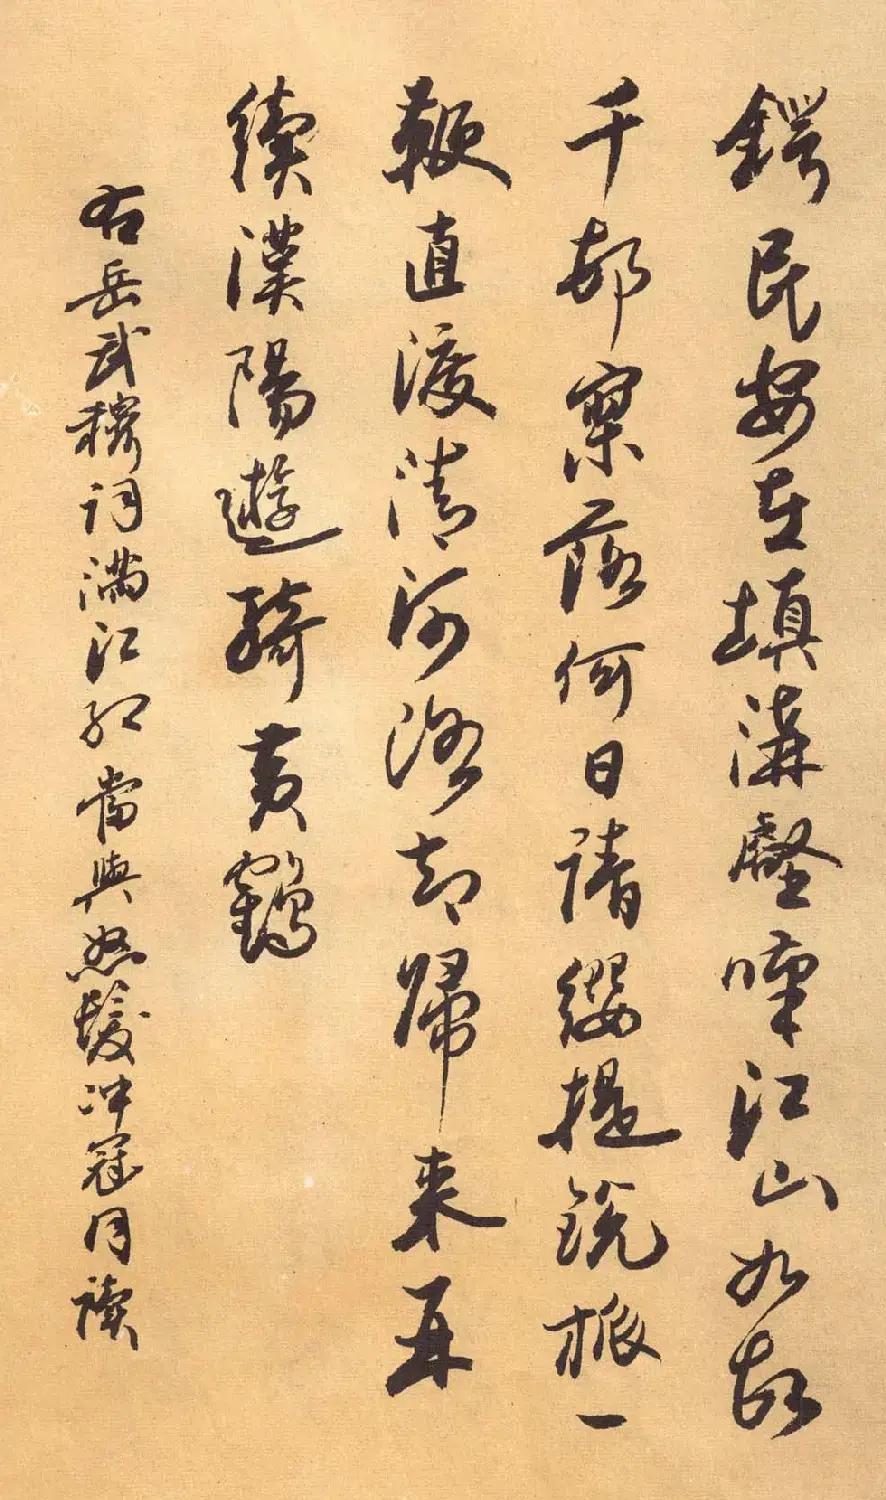 鍔民安在填溝壑嘆江山如故
千邨寥落何日請纓提銳旅一
鞭直渡清河洛却歸來再
續漢陽遊騎黃鶴
右岳武穆詞滿江紅當與怒髮冲冠同讀